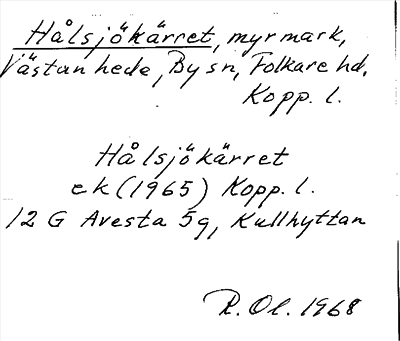 Hålsjökärret, myrmark,
Västanhede, By sn, Folkare hd,
Kopp. l.
Hålsjökärret
ek (1965) Kopp. l.
12 G Avesta 5g, Kullhyttan
R. Ol. 1968